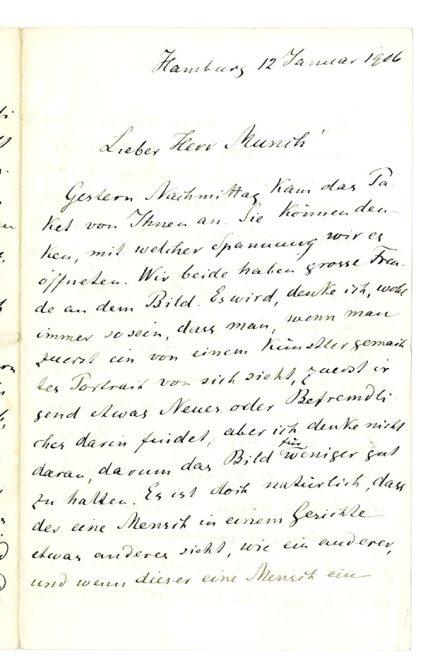 Hamburg 12 Januar 1906
Lieber Herr Munch!
Gestern Nachmittag kam das Pa-
ket von Ihnen an. Sie können den-
ken, mit welcher Spannung wir es
öffneten. Wir beide haben grosse Freu-
de an dem Bild. Es wird, denke ich, wohl
immer so sein, dass man, wenn man
zuerst ein von einem Künstler gemach-
tes Portrait von sich sieht, zuerst ir
gend etwas Neues oder Befremdli
ches darin findet, aber ich denke nicht
daran, darum das Bild für weniger gut
zu halten. Es ist doch natürlich, dass
der eine Mensch in einem Gesichte
etwas anderes sieht, wie ein anderer,
und wenn dieser eine Mensch ein